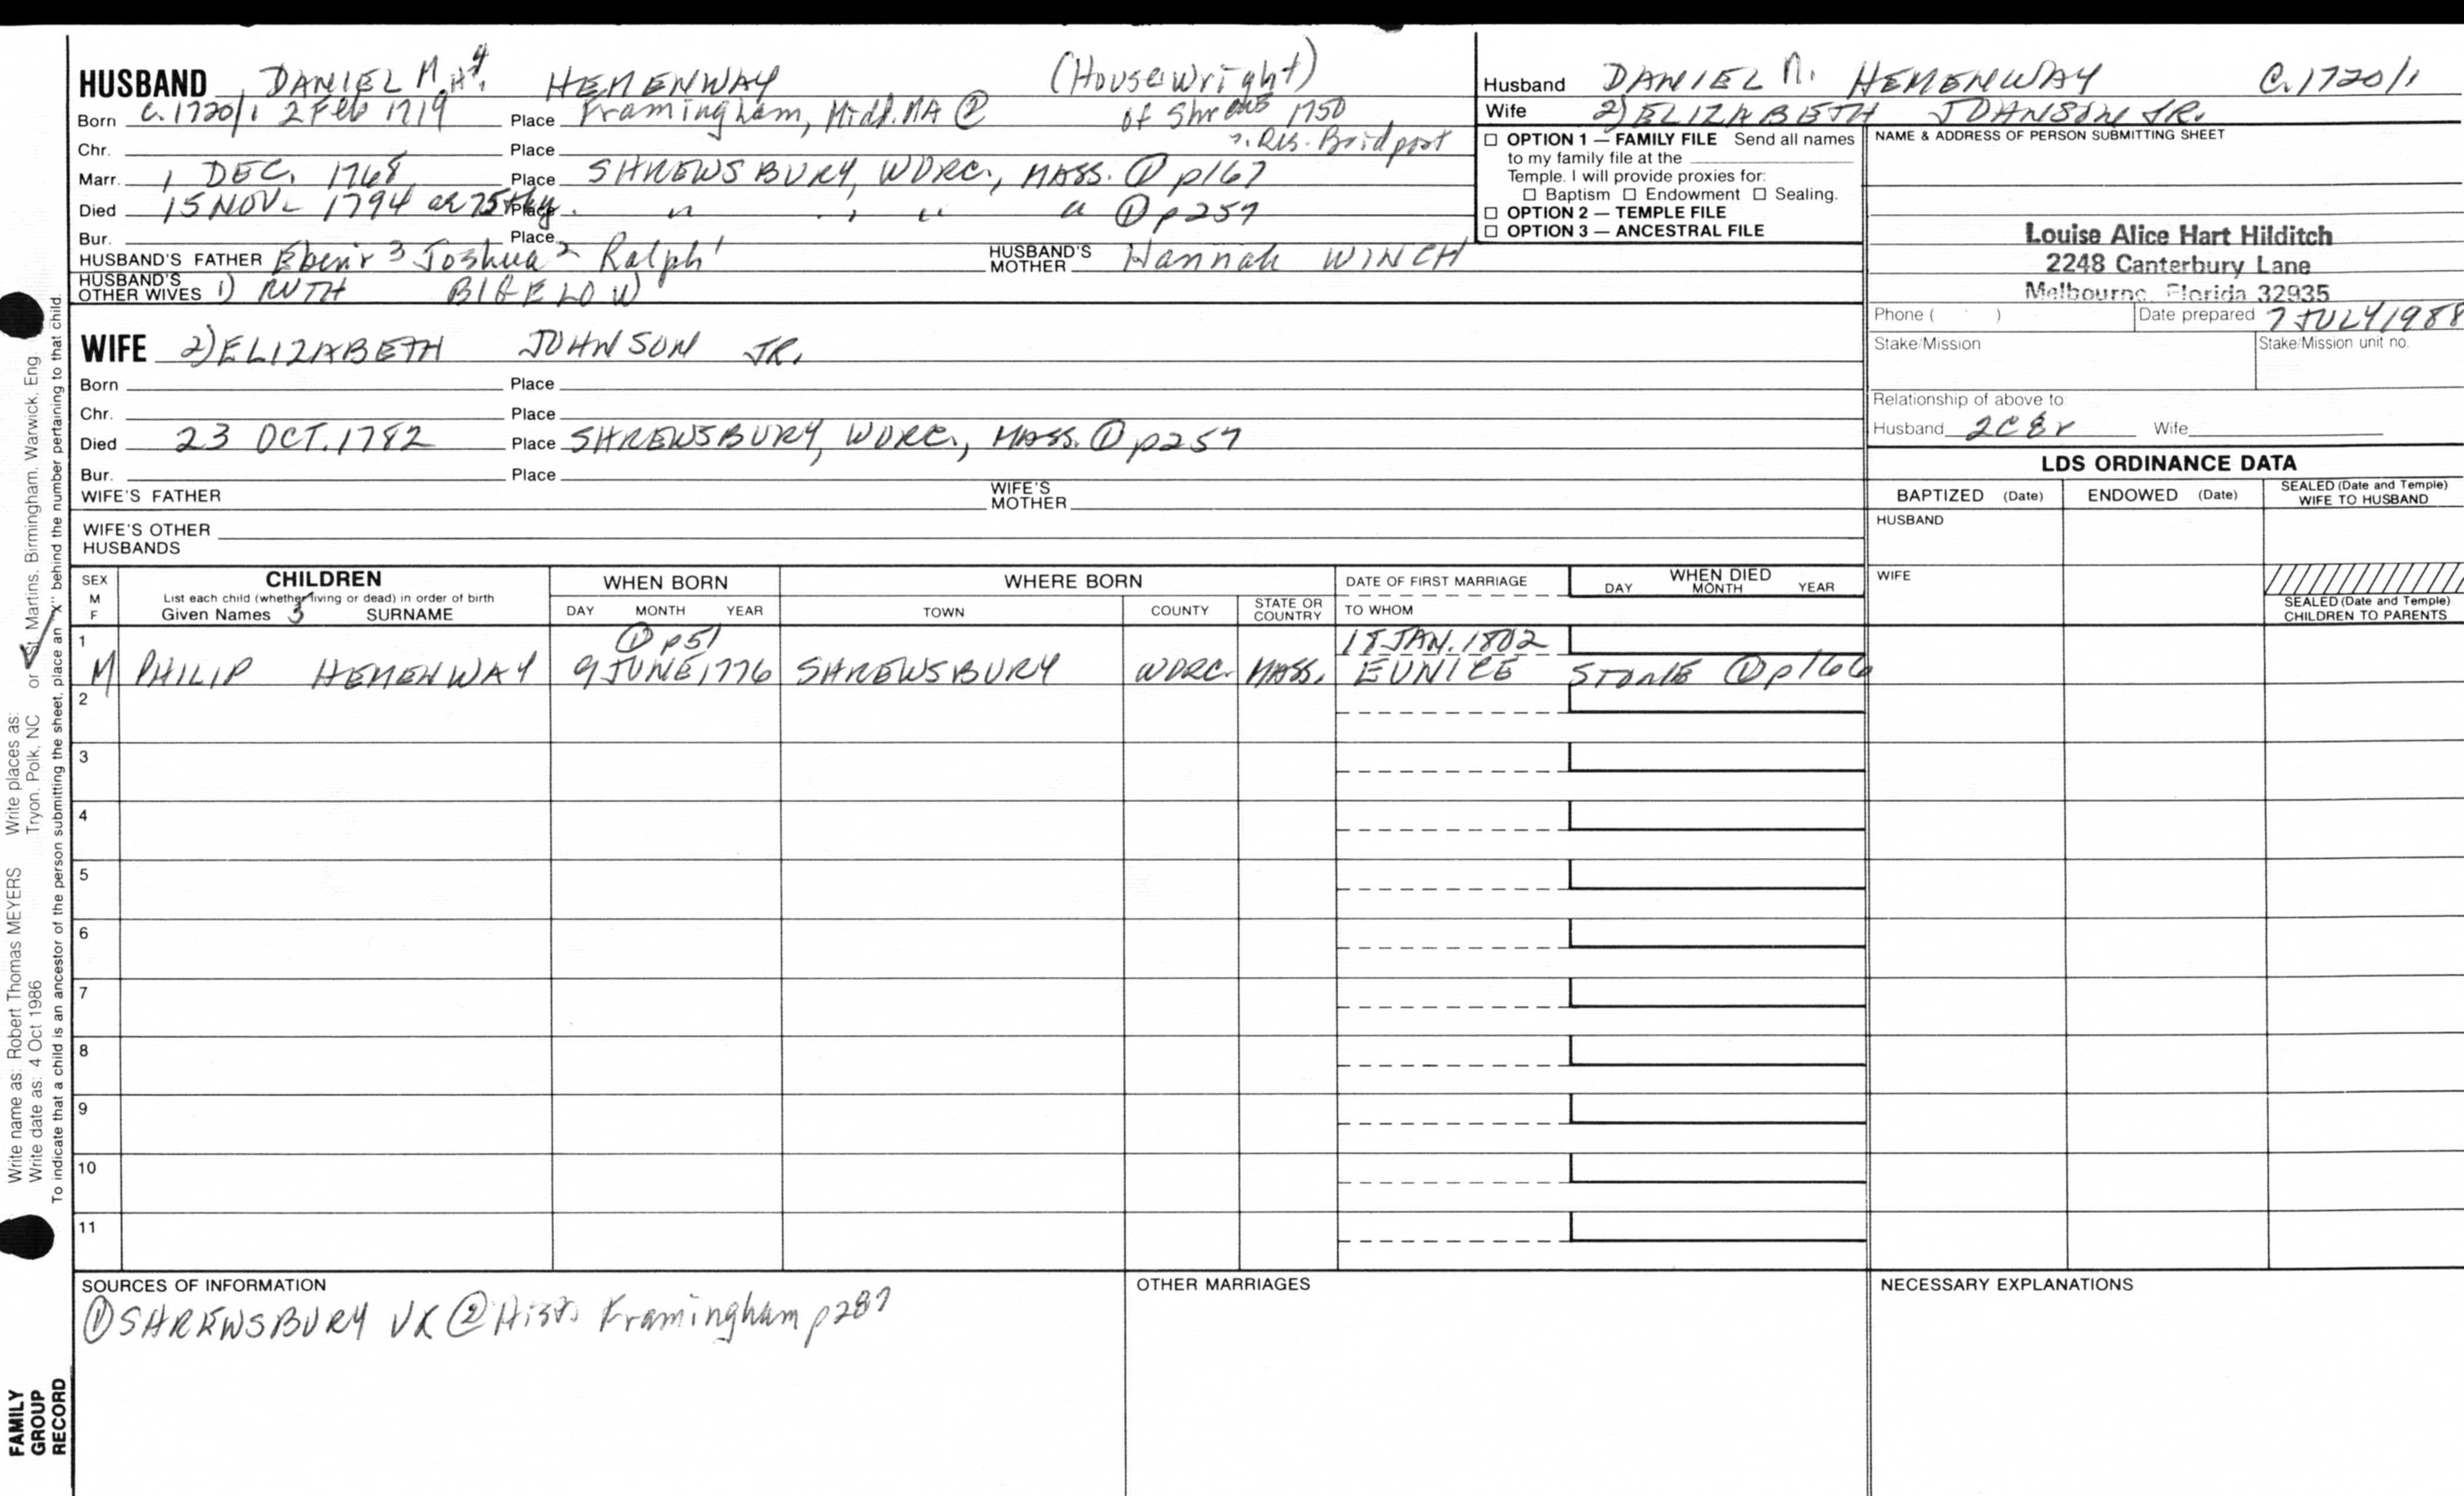 HUSBAND DANIEL M. HEMENWAY (Housewright)
Born c. 1720/1 2 Feb 1719 Place Framingham, Midl. MA ② of Shrews 1750
Chr. Place ?. Res. Bridport
Marr. 1 DEC. 1768 Place SHREWSBURY, WORC., MASS. ① p167
Died 15 NOV. 1794 ae 75th y. Place " " " " ① p257
Bur. Place
HUSBAND'S FATHER Ebenr 3 Joshua 2 Ralph 1 HUSBAND'S MOTHER Hannah WINCH
HUSBAND'S OTHER WIVES 1) RUTH BIGELOW
WIFE 2) ELIZABETH JOHNSON JR.
Born Place
Chr. Place
Died 23 OCT. 1782 Place SHREWSBURY, WORC., MASS. ① p257
Bur. Place
WIFE'S FATHER WIFE'S MOTHER
WIFE'S OTHER HUSBANDS
Husband DANIEL M. HEMENWAY C. 1720/1
Wife 2) ELIZABETH JOHNSON JR.
☐ OPTION 1 — FAMILY FILE Send all names
to my family file at the
Temple. I will provide proxies for:
☐ Baptism ☐ Endowment ☐ Sealing.
☐ OPTION 2 — TEMPLE FILE
☐ OPTION 3 — ANCESTRAL FILE
NAME & ADDRESS OF PERSON SUBMITTING SHEET
Louise Alice Hart Hilditch
2248 Canterbury Lane
Melbourne, Florida 32935
Phone ( ) Date prepared 7 JULY 1988
Stake/Mission Stake/Mission unit no.
Relationship of above to:
Husband 2C8r Wife
LDS ORDINANCE DATA
BAPTIZED (Date) ENDOWED (Date) SEALED (Date and Temple) WIFE TO HUSBAND
HUSBAND
WIFE
SEALED (Date and Temple) CHILDREN TO PARENTS
SEX M F CHILDREN WHEN BORN WHERE BORN DATE OF FIRST MARRIAGE WHEN DIED
List each child (whether living or dead) in order of birth DAY MONTH YEAR
Given Names 3 SURNAME DAY MONTH YEAR TOWN COUNTY STATE OR COUNTRY TO WHOM
1 ① p51 18 JAN. 1802
M PHILIP HEMENWAY 9 JUNE 1776 SHREWSBURY WORC. MASS. EUNICE STONE ① p166
2
3
4
5
6
7
8
9
10
11
SOURCES OF INFORMATION
① SHREWSBURY VR ② Hist. Framingham p287
OTHER MARRIAGES
NECESSARY EXPLANATIONS
Write name as: Robert Thomas MEYERS Write places as: or St. Martins, Birmingham, Warwick, Eng.
Write date as: 4 Oct 1986 Tryon, Polk, NC
To indicate that a child is an ancestor of the person submitting the sheet, place an "X" behind the number pertaining to that child.
FAMILY
GROUP
RECORD